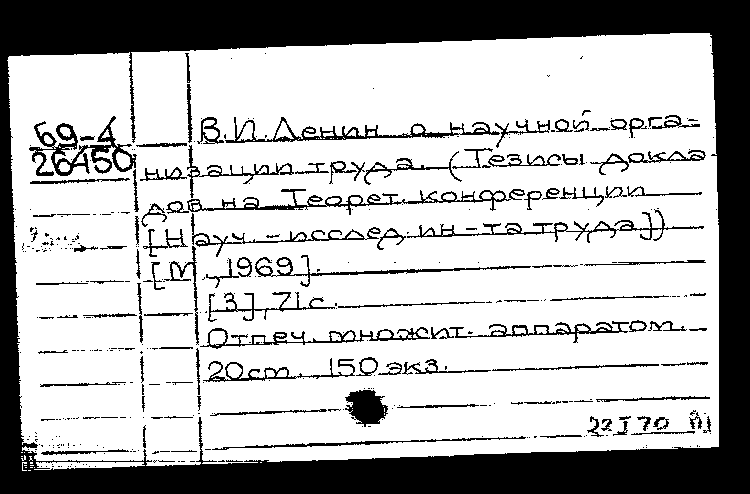 69-4
26450
В.И. Ленин о научной орга=
низации труда. (Тезисы докла-
дов на Теорет. конференции
[Науч.-исслед. ин-та труда])
[М., 1969].
[3], 71 с.
Отпеч. множит. аппаратом.
20 см. 150 экз.
22 I 70